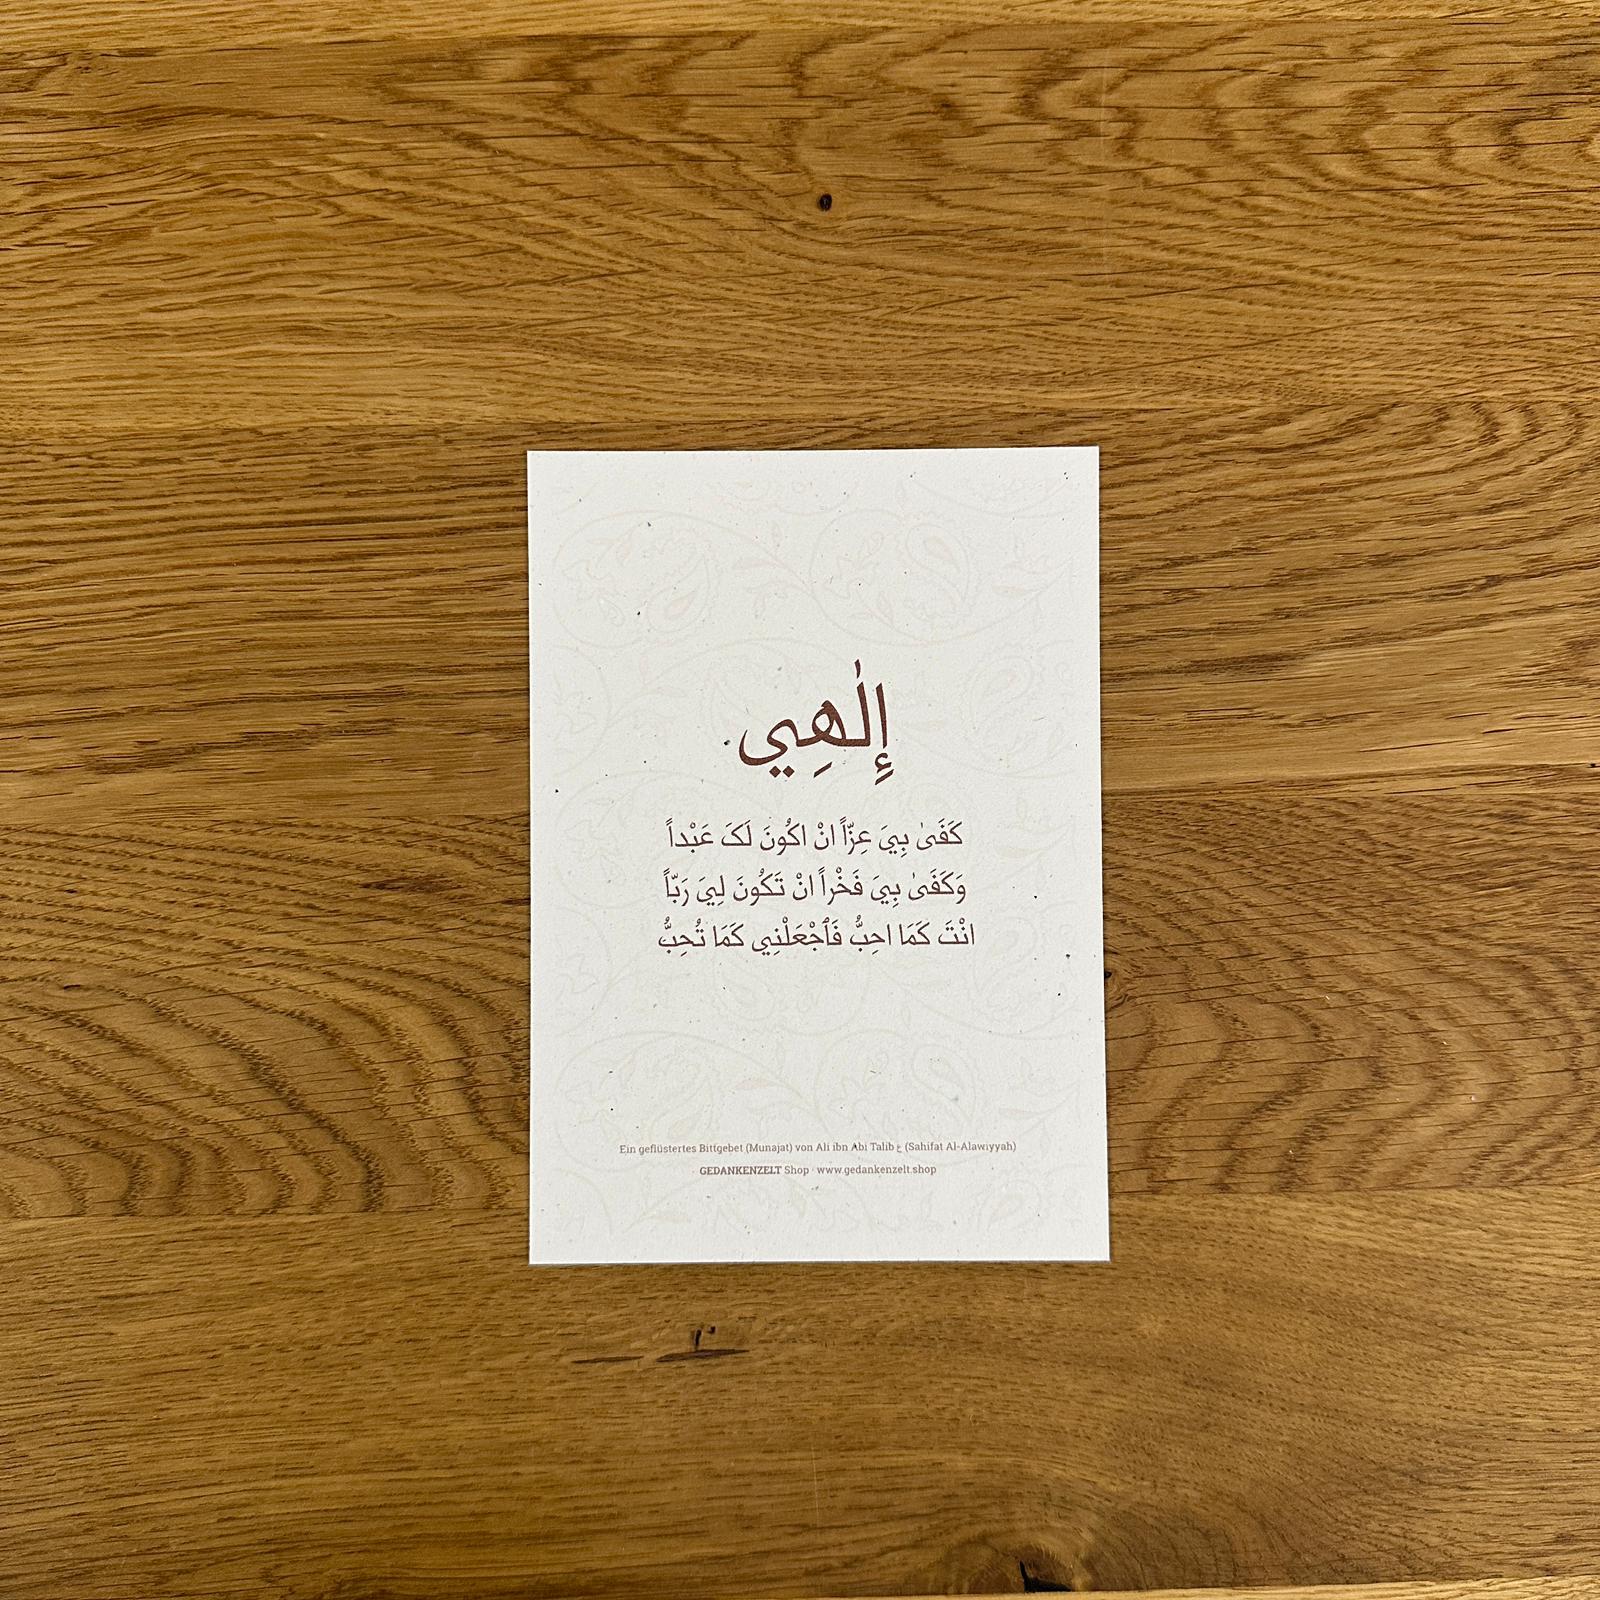 إِلٰهِي
كَفَىٰ بِيَ عِزّاً انْ اكُونَ لَکَ عَبْداً
وَكَفَىٰ بِيَ فَخْراً انْ تَكُونَ لِيَ رَبّاً
انْتَ كَمَا احِبُّ فَٱجْعَلْنِي كَمَا تُحِبُّ
Ein geflüstertes Bittgebet (Munajat) von Ali ibn Abi Talib ع (Sahifat Al-Alawiyyah)
GEDANKENZELT Shop · www.gedankenzelt.shop